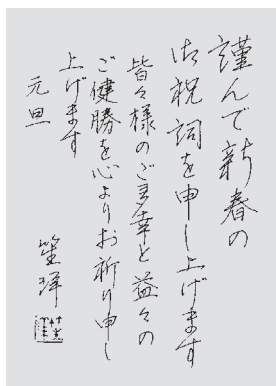 謹んで新春の
御祝詞を申し上げます
皆々様のご多幸と益々の
ご健勝を心よりお祈り申し
上げます
元旦